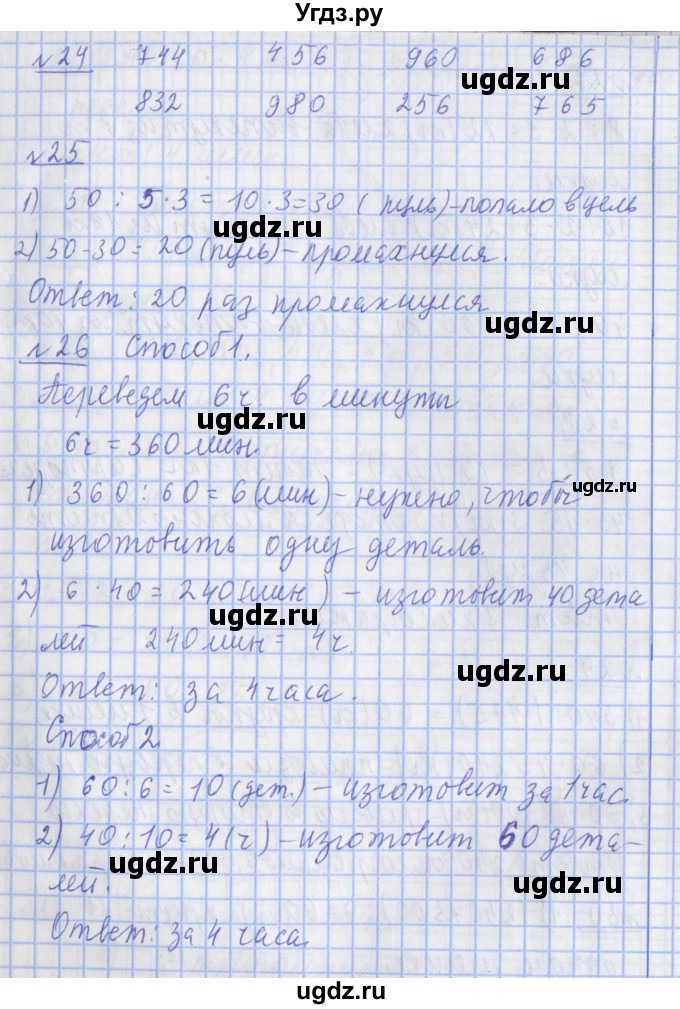 Угдз.ру
№24 744 456 960 686
ugdz.ru ugdz.ru
832 980 256 765
№25
1) 50 : 5 · 3 = 10 · 3 = 30 ( пуль) - попало в цель
ugdz.ru
2) 50 - 30 = 20 (пуль) - промахнулся.
Ответ: 20 раз промахнулся
ugdz.ru
№26 Способ 1.
Переведем 6ч. в минуты
ugdz.ru
6ч = 360 мин.
1) 360 : 60 = 6 (мин) - нужно, чтобы
ugdz.ru
изготовить одну деталь.
2) 6 · 40 = 240 (мин) - изготовит 40 дета
ugdz.ru
лей 240 мин = 4 ч.
ugdz.ru
Ответ: за 4 часа.
Способ 2
ugdz.ru
1) 60 : 6 = 10 (дет.) - изготовит за 1 час.
2) 40 : 10 = 4 (ч) - изготовит 60 дета-
ugdz.ru
лей.
ugdz.ru
Ответ: за 4 часа.
ugdz.ru